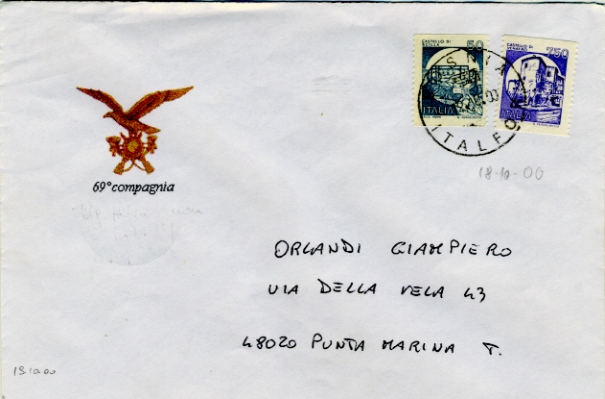 CASTELLO DI SCILLA 50
ITALIA
CASTELLO DI VENAFRO 750
ITALIA
ITALFOR
69° compagnia
18-10-00
ORLANDI GIAMPIERO
VIA DELLA VELA 43
48020 PUNTA MARINA T.
18 10 00